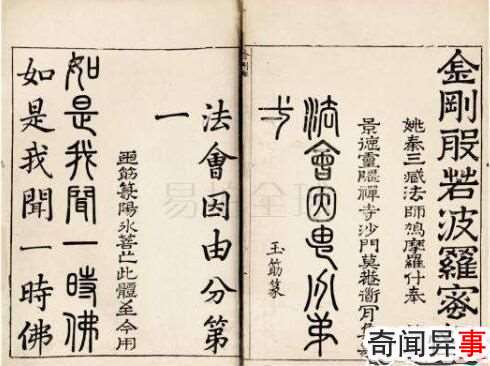 金剛般若波羅
姚秦三臧法師鳩摩羅什奉
景德靈隱禪寺沙門莫菴衟肎集
法會因由分第
弌
玉筯篆
法會因由分第
一
筯篆陽氷善於此體至今用
如是我聞一時佛
如是我聞一時佛
奇闻异事